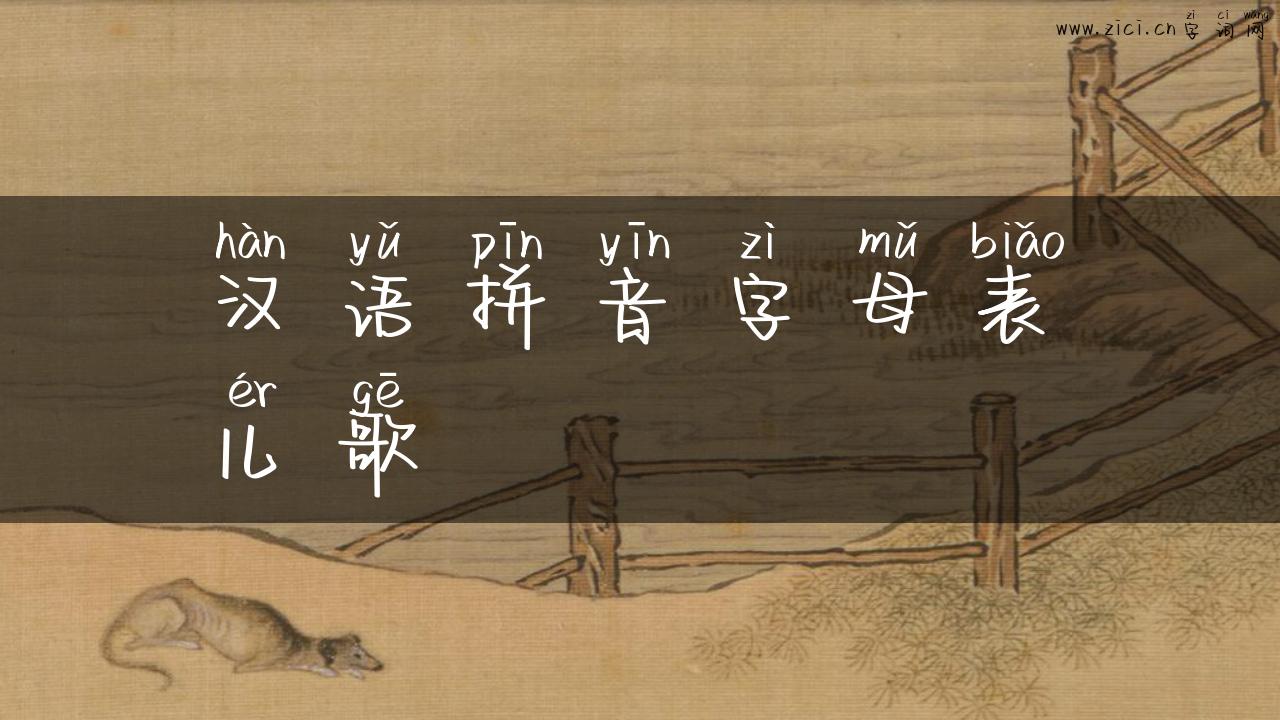 zì cí wǎng
www.zici.cn字词网
hàn yǔ pīn yīn zì mǔ biǎo
汉语拼音字母表
ér gē
儿歌